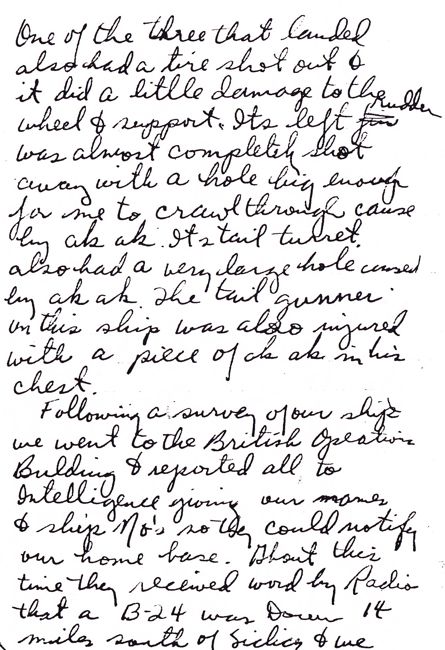 One of the three that landed
also had a tire shot out &
it did a little damage to the
wheel & support. Its left rudder
was almost completely shot
away with a hole big enough
for me to crawl through cause
by ak ak. Its tail turret.
also had a very large hole caused
by ak ak. The tail gunner
in this ship was also injured
with a piece of ak ak in his
chest.
Following a survey of our ships
we went to the British Operations
Building & reported all to
Intelligence giving our names
& ship No's so they could notify
our home base. About this
time they received word by Radio
that a B-24 was Down 14
miles south of Sicily & we